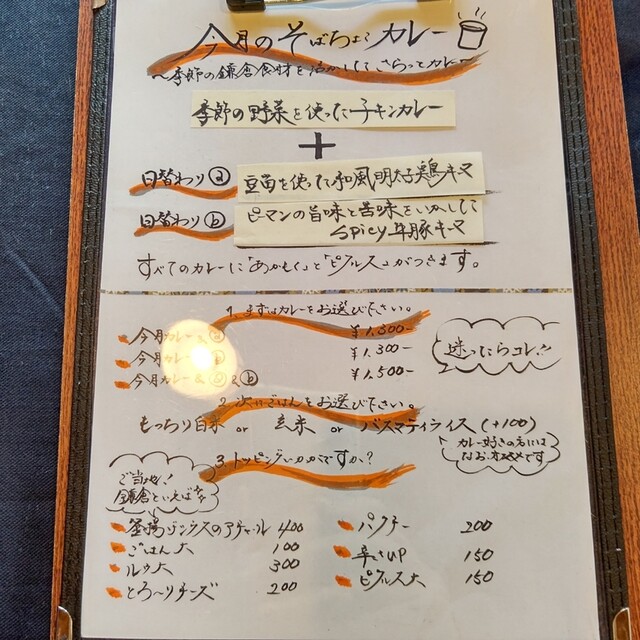 今月のそばちょこカレー
〜季節の鎌倉食材を活かしてさらっとカレー〜
季節の野菜を使ったチキンカレー
+
日替わりⓐ 豆苗を使った和風明太子鶏キーマ
日替わりⓑ ピーマンの旨味と苦味をいかして
spicy牛豚キーマ
すべてのカレーに「あかもく」と「ピクルス」がつきます。
1. まずはカレーをお選び下さい。
今月カレー & ⓐ ¥1,300-
今月カレー & ⓑ ¥1,300-
今月カレー & ⓐ & ⓑ ¥1,500-
迷ったらコレ!!
2. 次にごはんをお選び下さい。
もっちり白米 or 玄米 or バスマティライス (+100)
カレー好きの方には
なおオススメです
3. トッピングいかがですか?
ご当地!
鎌倉といえば
釜揚げシラスのアチャール 400
ごはん大 100
ルウ大 300
とろ〜りチーズ 200
パクチー 200
辛さUP 150
ピクルス大 150